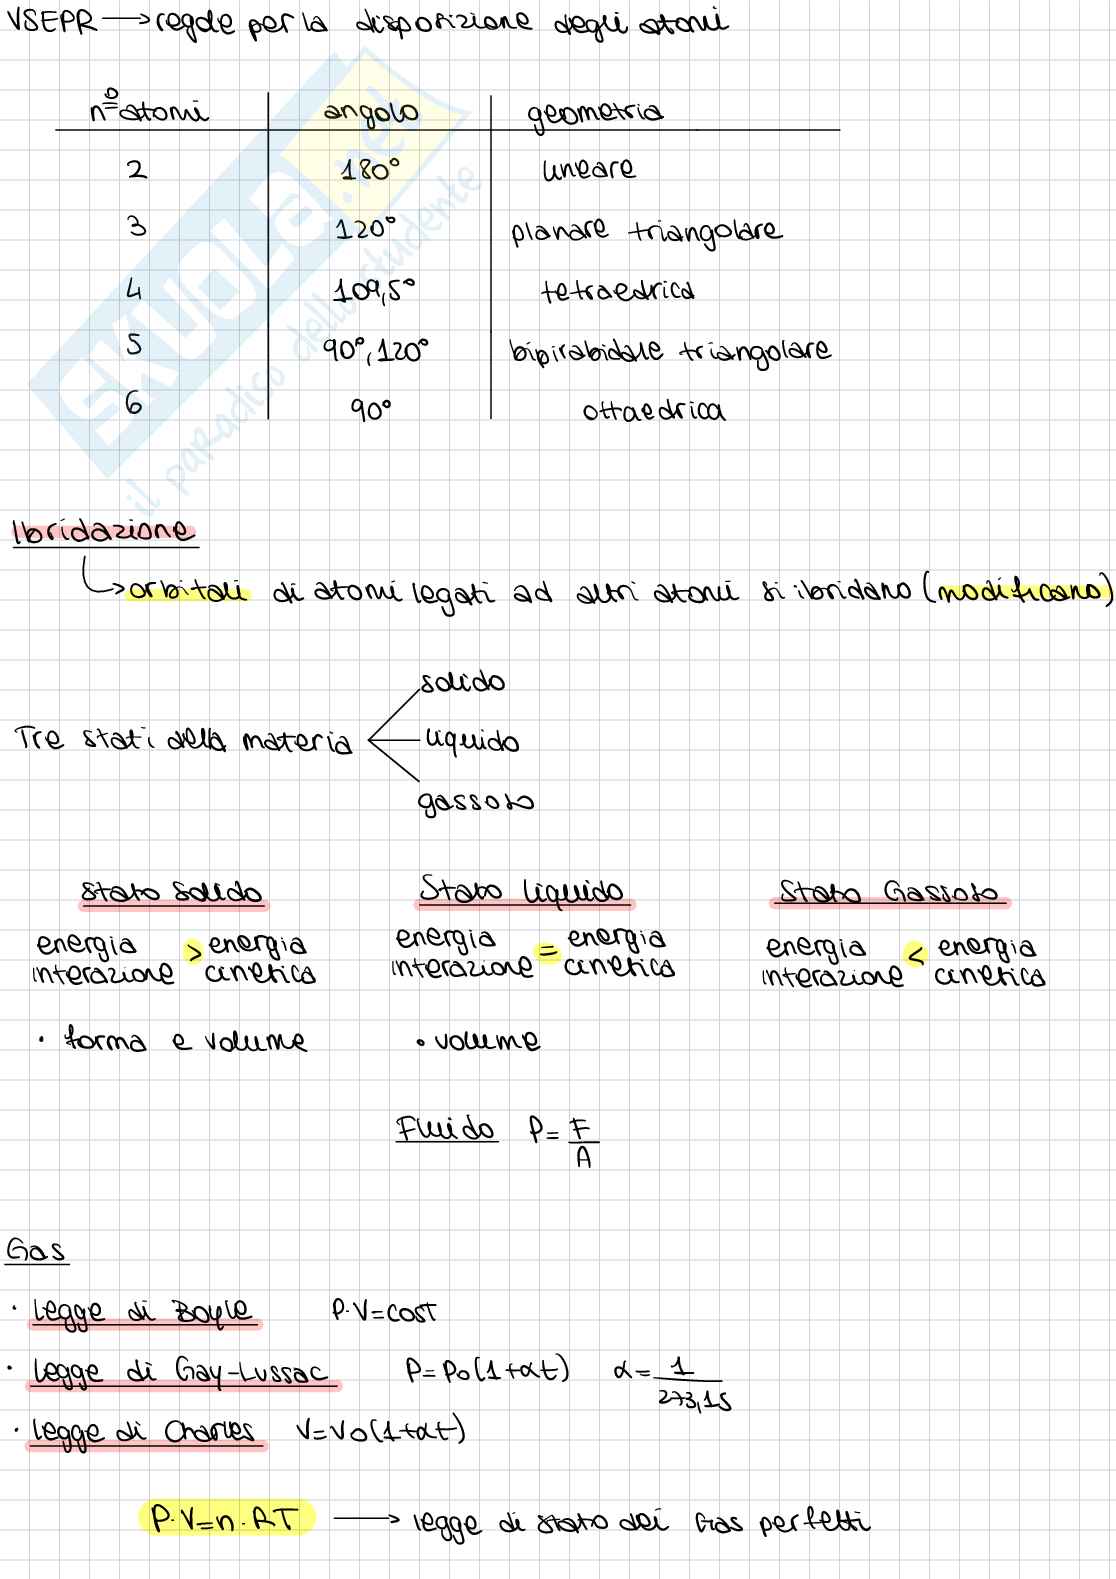 VSEPR → regole per la disposizione degli atomi
n° atomi angolo geometria
2 180° lineare
3 120° planare triangolare
4 109,5° tetraedrica
5 90°, 120° bipirabidale triangolare
6 90° ottaedrica
SKUOLA.net
il paradiso dello studente
Ibridazione
→ orbitali di atomi legati ad altri atomi si ibridano (modificano)
solido
Tre stati della materia liquido
gassoso
Stato Solido Stato Liquido Stato Gassoso
energia > energia energia = energia energia < energia
interazione cinetica interazione cinetica interazione cinetica
· forma e volume • volume
Fluido P = F/A
Gas
· Legge di Boyle P·V=cost
· Legge di Gay-Lussac P=P0(1+αt) α=1/273,15
· Legge di Charles V=V0(1+αt)
P·V=n·RT → legge di stato dei Gas perfetti